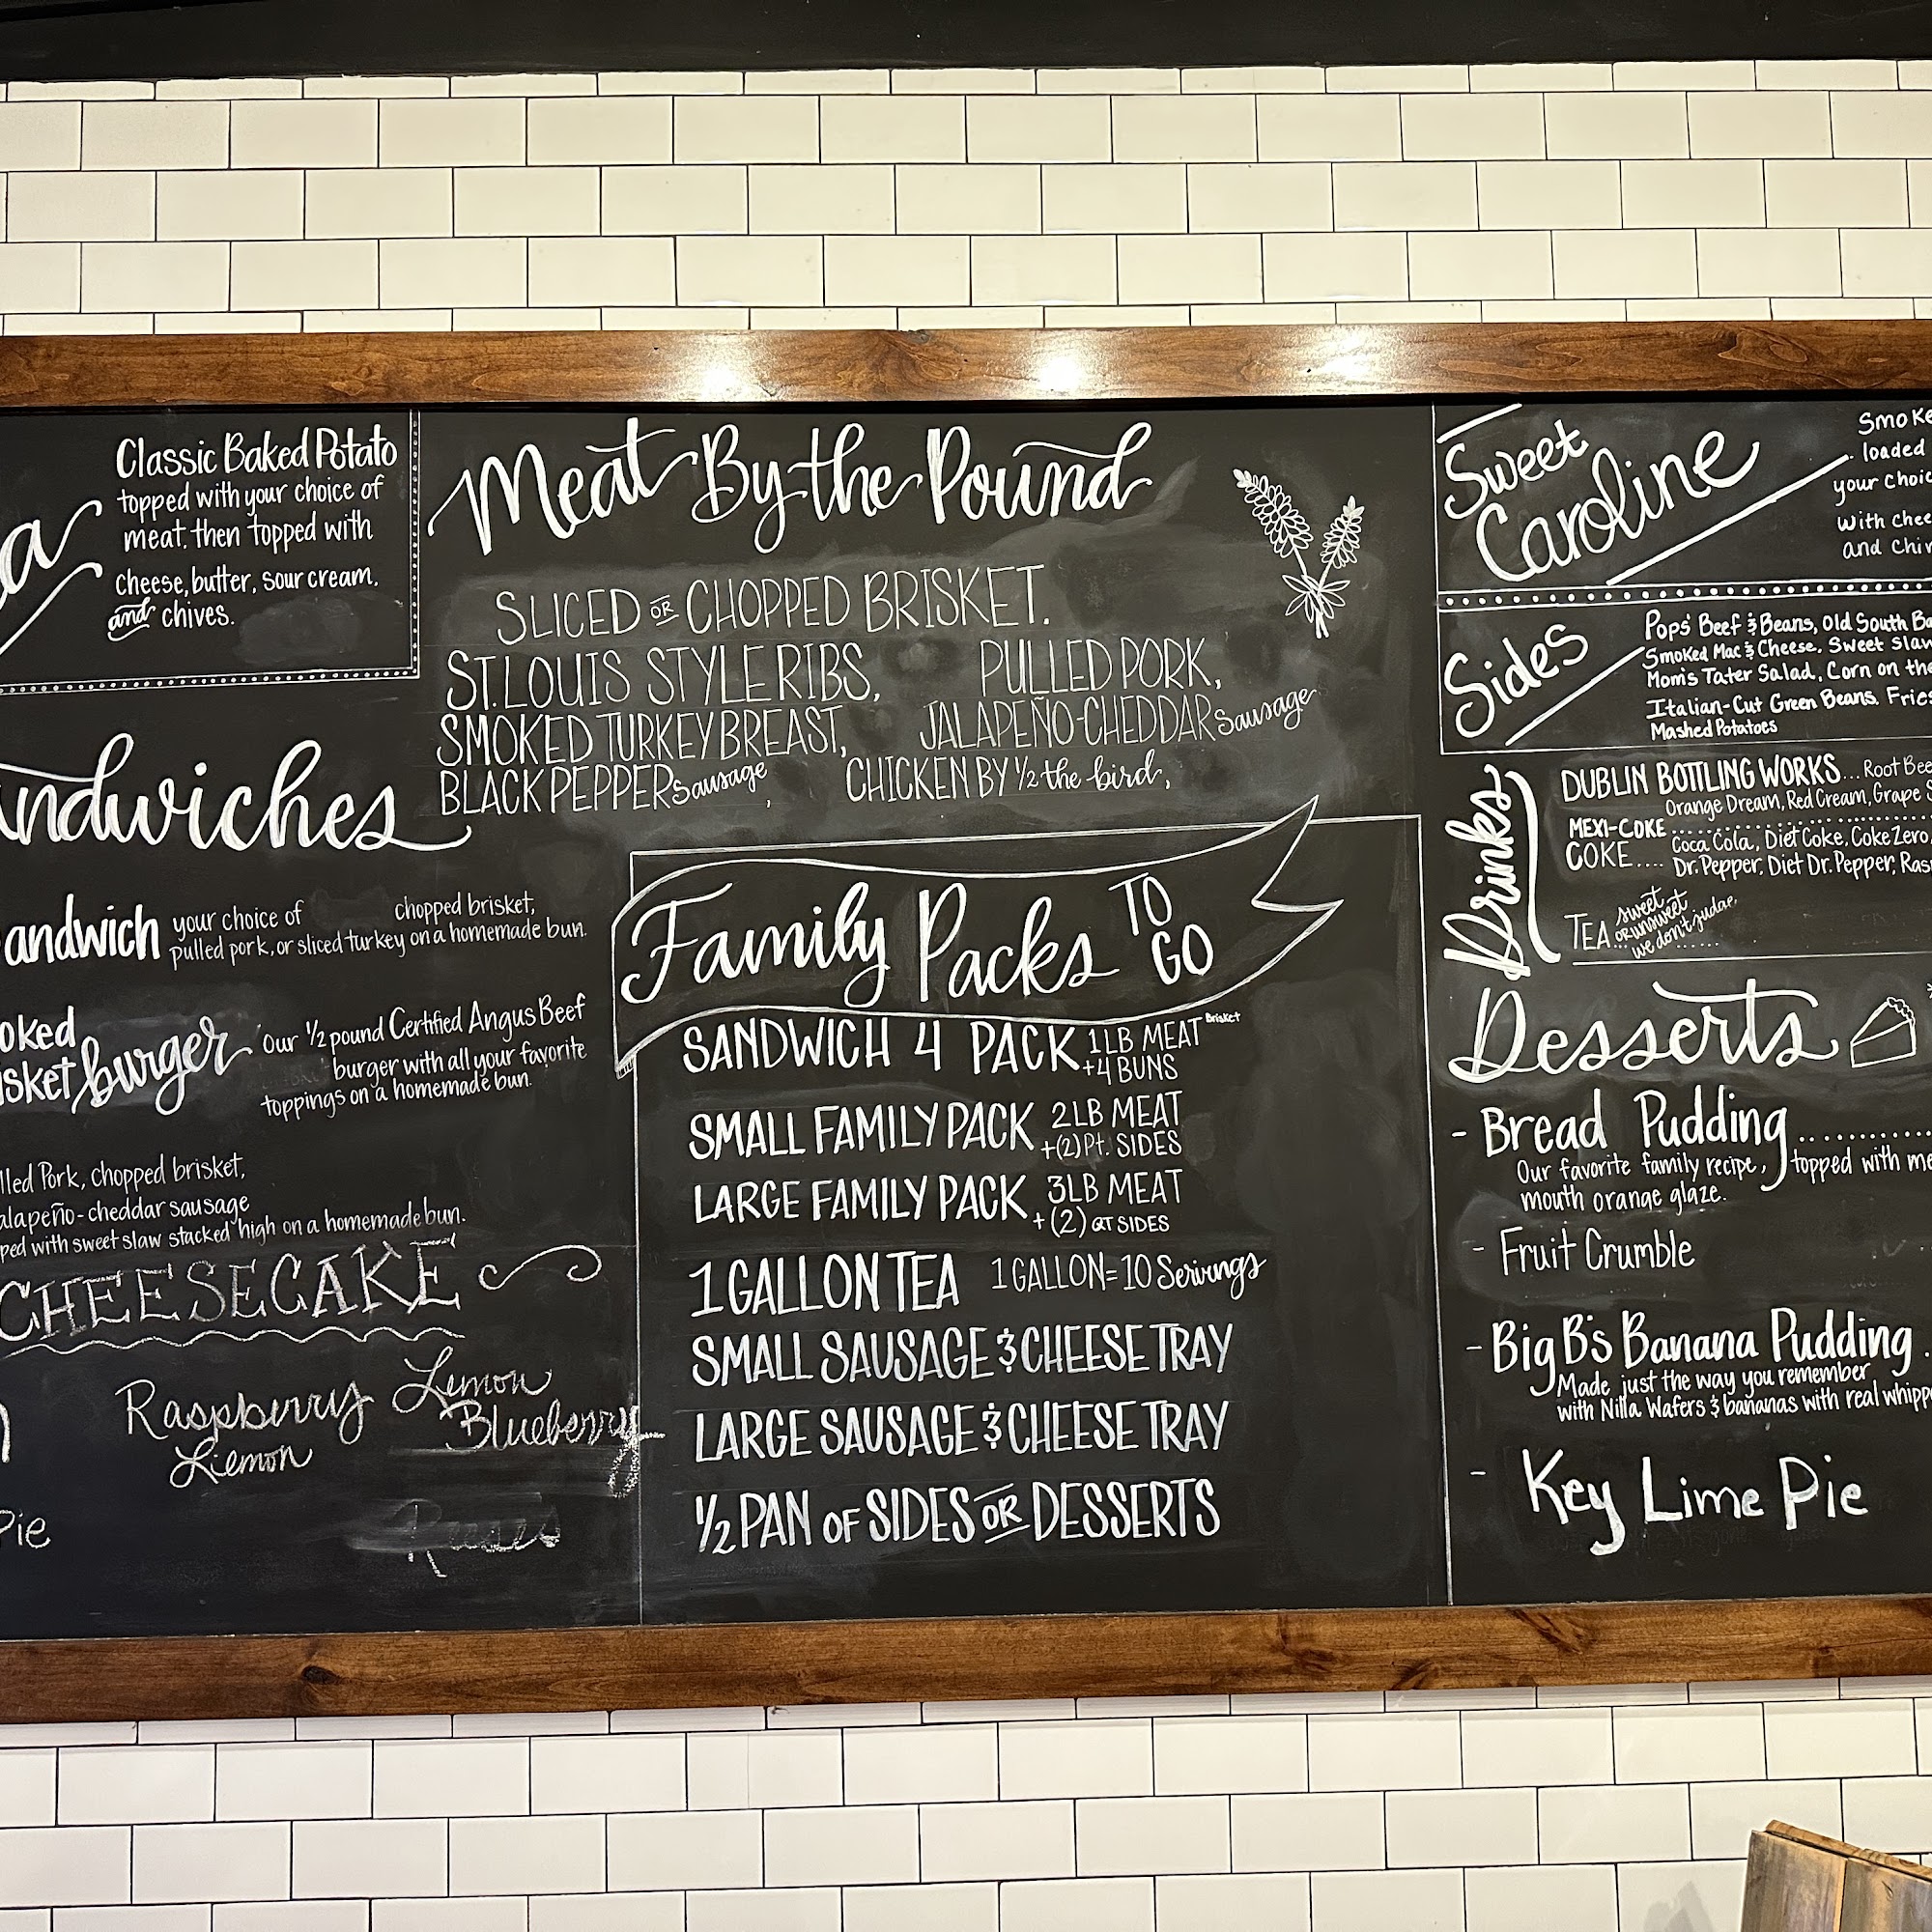 Classic Baked Potato
topped with your choice of
meat. then topped with
cheese, butter, sour cream,
and chives.
Sandwich your choice of chopped brisket,
pulled pork, or sliced turkey on a homemade bun.
burger Our 1/2 pound Certified Angus Beef
burger with all your favorite
toppings on a homemade bun.
Pork, chopped brisket,
jalapeño-cheddar sausage
with sweet slaw stacked high on a homemade bun.
CHEESECAKE
Raspberry
Lemon
Lemon
Blueberry
Pie
Meat By the Pound
SLICED OR CHOPPED BRISKET.
ST. LOUIS STYLE RIBS, PULLED PORK,
SMOKED TURKEY BREAST, JALAPEÑO-CHEDDAR sausage
BLACK PEPPER sausage, CHICKEN BY 1/2 the bird,
Family Packs TO GO
SANDWICH 4 PACK 1LB MEAT Brisket
+4 BUNS
SMALL FAMILY PACK 2LB MEAT
+(2) Pt. SIDES
LARGE FAMILY PACK 3LB MEAT
+(2) QT SIDES
1 GALLON TEA 1 GALLON=10 Servings
SMALL SAUSAGE & CHEESE TRAY
LARGE SAUSAGE & CHEESE TRAY
1/2 PAN OF SIDES OR DESSERTS
Sweet
Caroline
loaded
your
with
and
Sides
Pops' Beef & Beans, Old South
Smoked Mac & Cheese, Sweet Slaw
Mom's Tater Salad, Corn on the
Italian-Cut Green Beans. Fries
Mashed Potatoes
Drinks
DUBLIN BOTTLING WORKS... Root
Orange Dream, Red Cream, Grape
MEXI-COKE
COKE.... Coca Cola, Diet Coke, Coke Zero,
Dr. Pepper, Diet Dr. Pepper,
TEA... sweet
or unsweet
we don't judge.
Desserts
- Bread Pudding
Our favorite family recipe, topped with
mouth orange glaze.
- Fruit Crumble
- Big B's Banana Pudding
Made just the way you remember
with Nilla Wafers & bananas with real
- Key Lime Pie